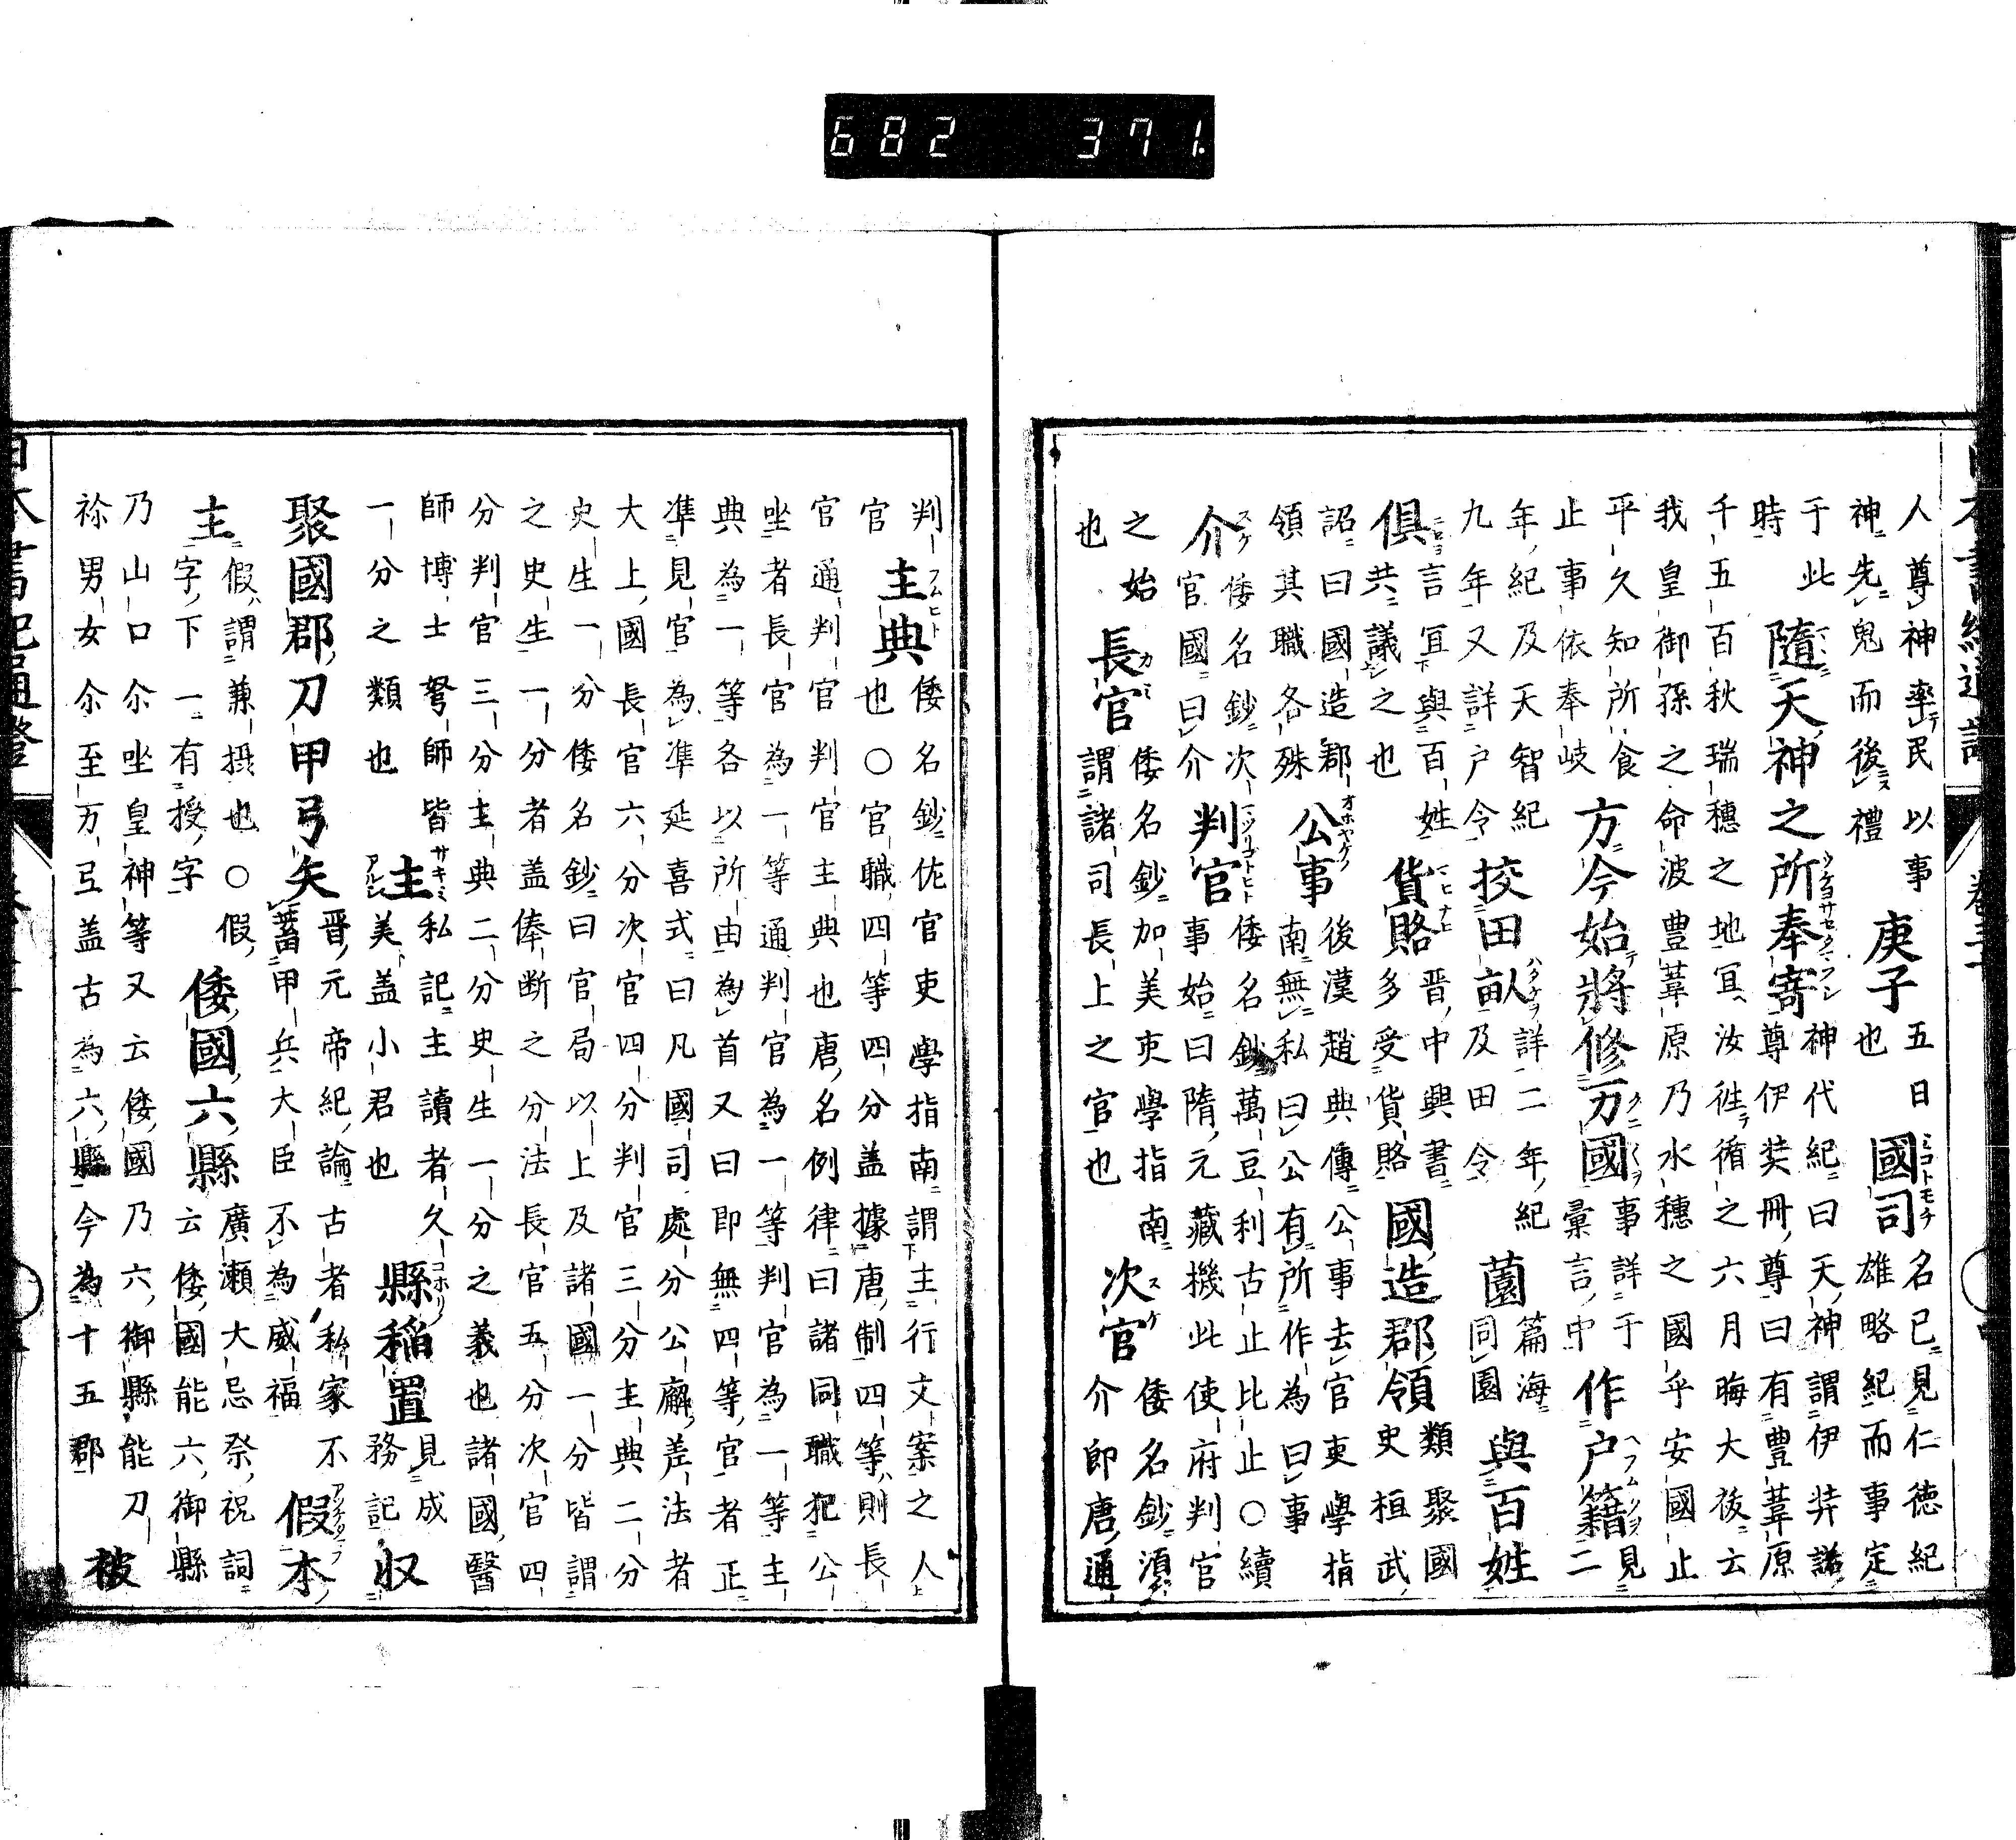 682 371.
人尊神率民以事
神先鬼而後禮
庚子
五日
也
國司
名已見仁徳紀
雄略紀而事定
于此
時
隨天神之所奉寄
神代紀曰天神謂伊弉諾
尊伊弉冊尊曰有豊葦原
千五百秋瑞穂之地宜汝徃循之六月晦大祓云
我皇御孫之命波豊葦原乃水穗之國乎安國止
平久知所食
止事依奉岐
方今始將修万國
事詳于
彙言中
作戸籍
見
二
年紀及天智紀
九年又詳戸令
挍田畝
詳二年紀
及田令
薗
篇海
同園
與百姓
言宜與百姓
俱共議之也
貨賂
晋中興書
多受貨賂
國造郡領
類聚國
史桓武
詔曰國造郡
領其職各殊
公事
後漢趙典傳公事去官吏學指
南無私曰公有所作為曰事
介
倭名鈔次
官國曰介
判官
倭名鈔萬豆利古止比止○續
事始曰隋元藏機此使府判官
之始
也
長官
倭名鈔加美吏學指南
謂諸司長上之官也
次官
倭名鈔湏
介即唐通
判
官
主典
倭名鈔佐官吏學指南謂主行文案之人
也○官職四等四分盖據唐制四等則長
官通判官判官主典也唐名例律曰諸同職犯公
坐者長官為一等通判官為一等判官為一等主
典為一等各以所由為首又曰即無四等官者正
凖見官為凖延喜式曰凡國司處分公廨差法者
大上國長官六分次官四分判官三分主典二分
史生一分倭名鈔曰官局以上及諸國一分皆謂
之史生一分者盖俸断之分法長官五分次官四
分判官三分主典二分史生一分之義也諸國醫
師博士弩師皆
一分之類也
主
私記主讀者久
美盖小君也
縣稲置
見成
務記
収
聚國郡刀甲弓矢
晋元帝紀論古者私家不
蓄甲兵大臣不為威福
假本
主
假謂兼摂也○假
字下一有授字
倭國六縣
廣瀬大忌祭祝詞
云倭國能六御縣
乃山口尓坐皇神等又云倭國乃六御縣能刀
祢男女尓至万弖盖古為六縣今為十五郡
被